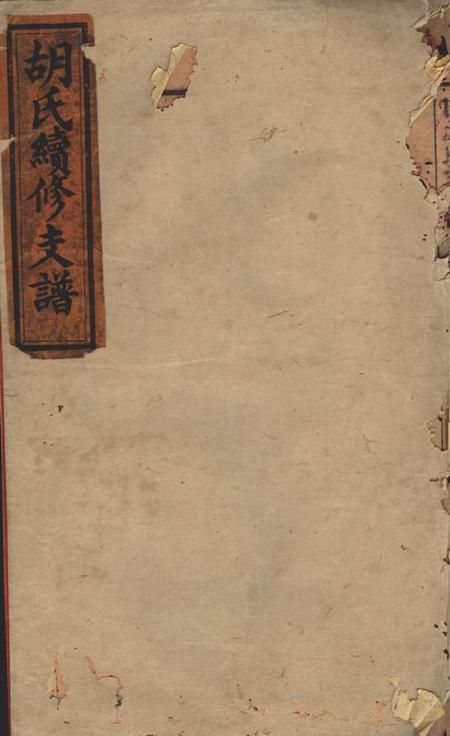 胡氏續修支譜